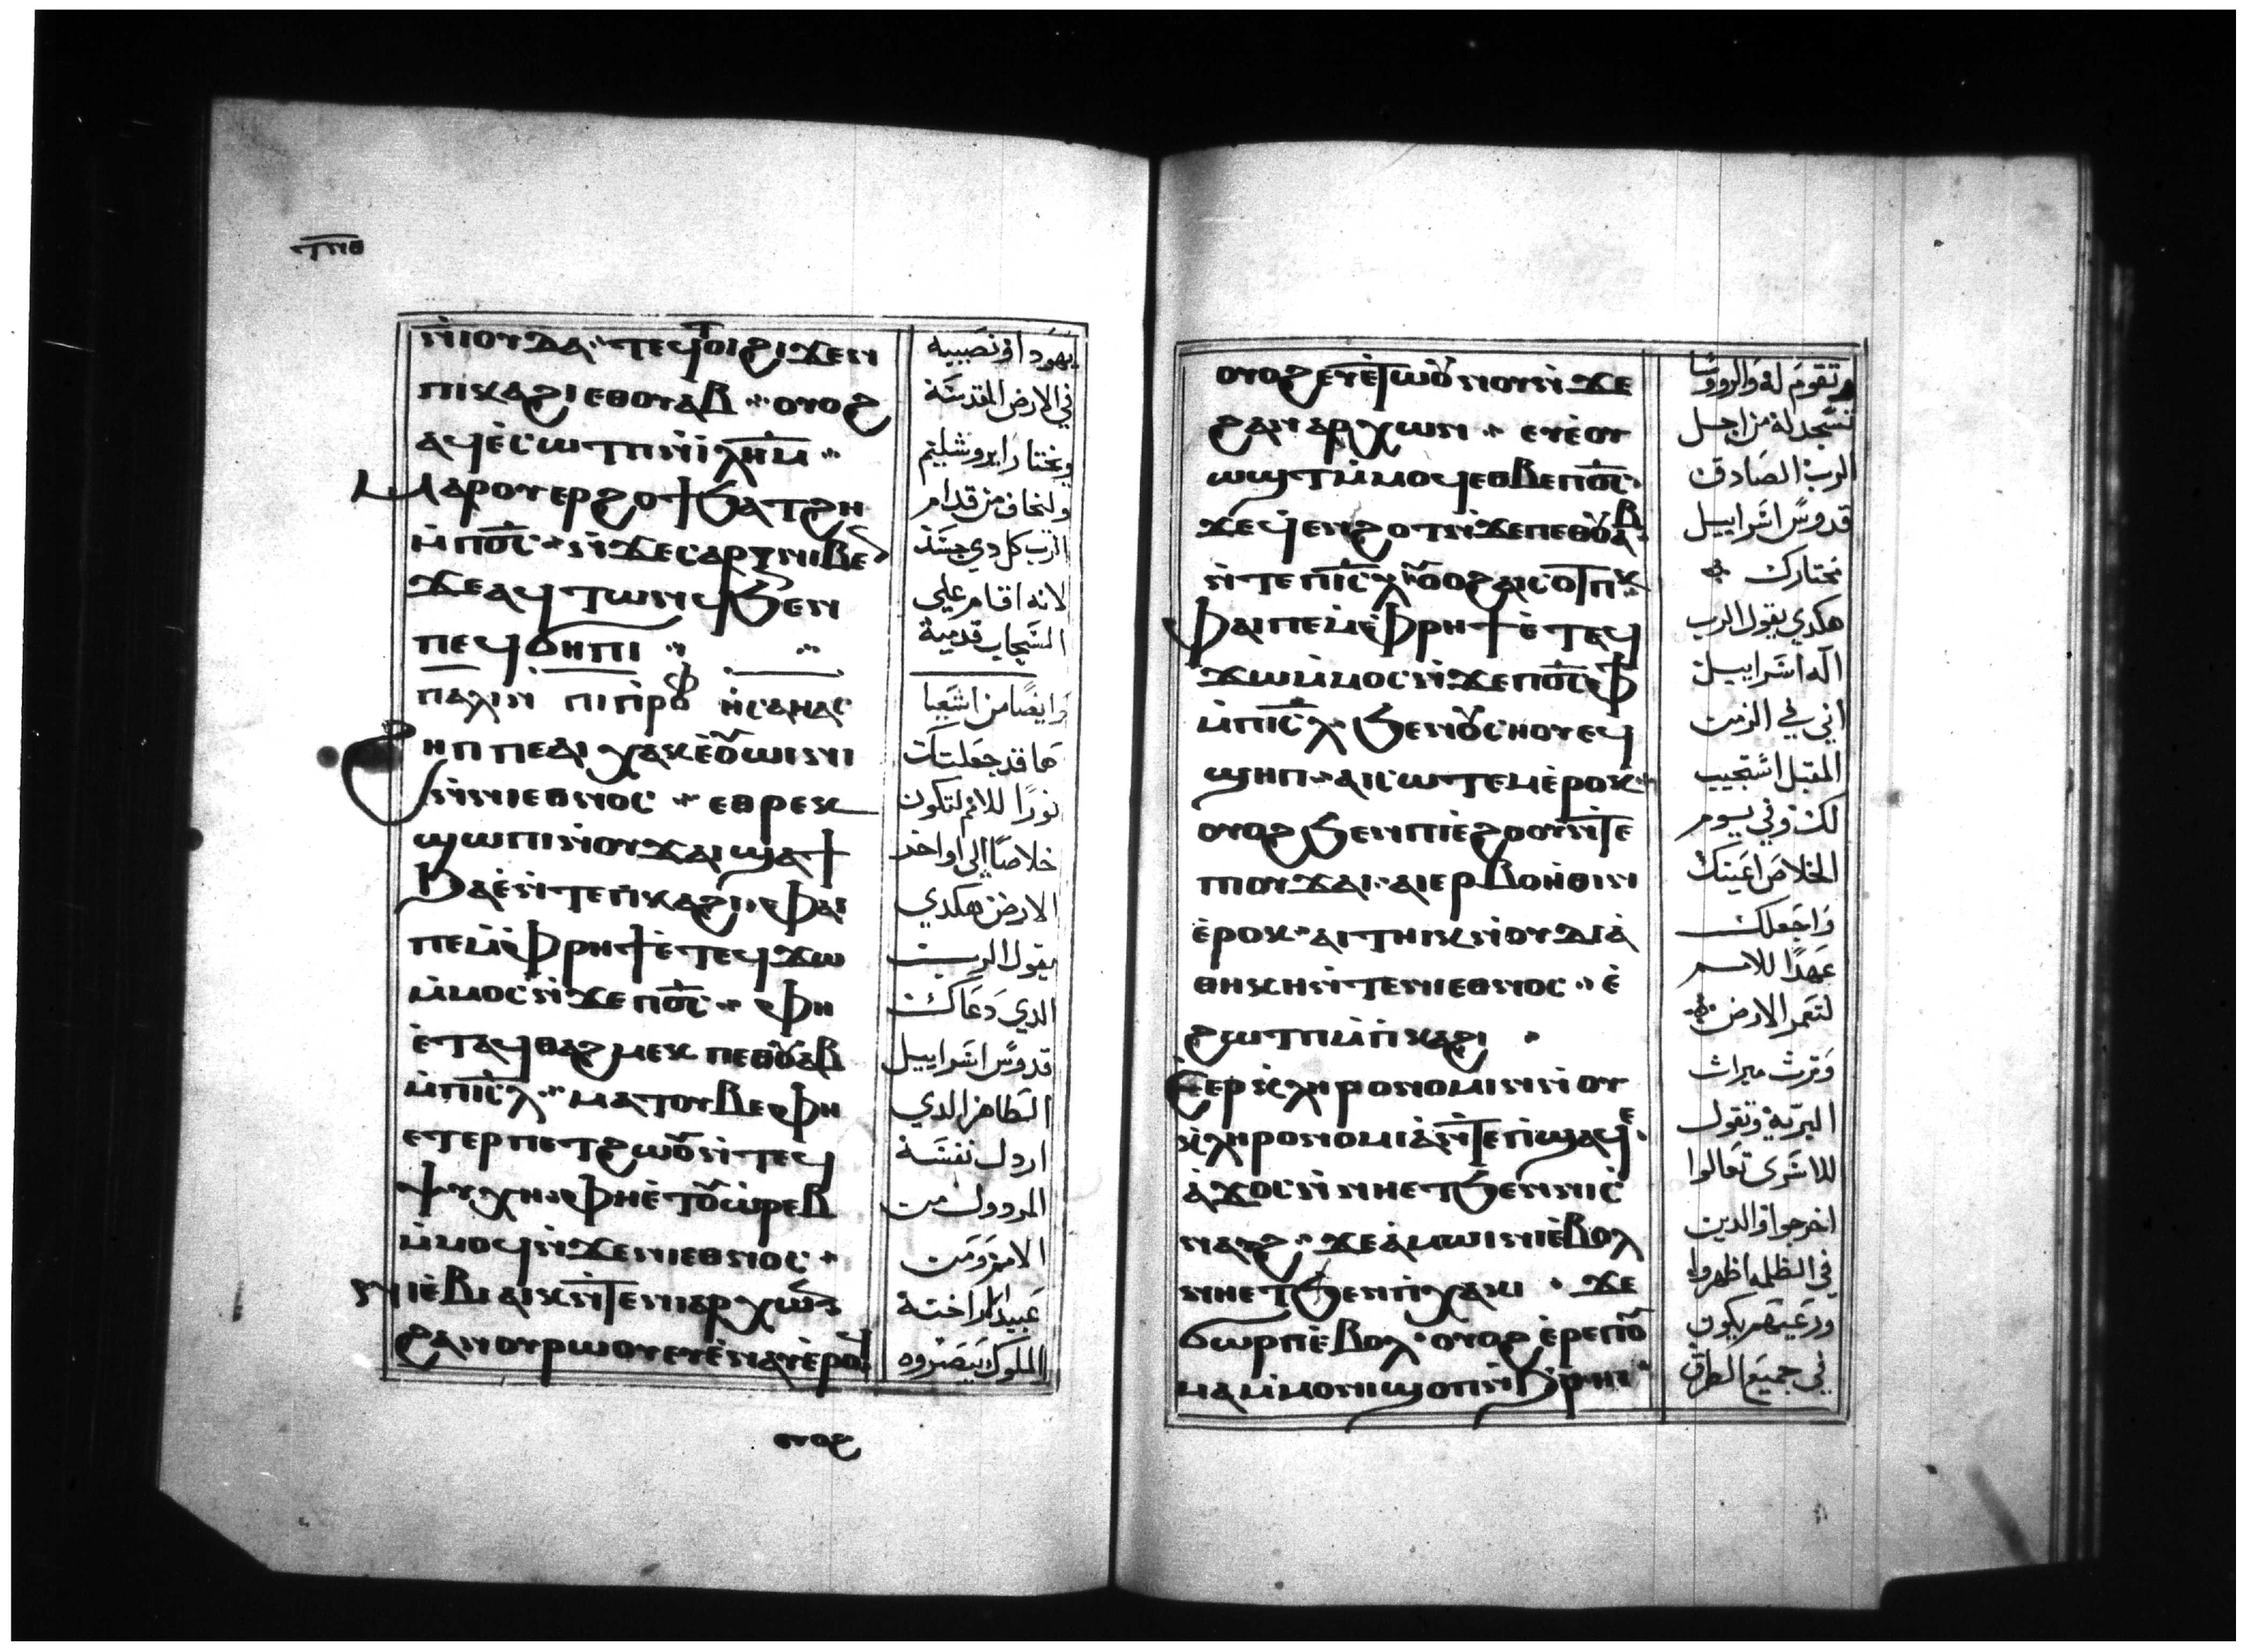 ⲧⲛⲑ
ⲛ̀ⲓⲟⲩⲇⲁ·· ⲧⲉϥⲧⲟⲓ ϩⲓϫⲉⲛ
ⲡⲓⲕⲁϩⲓ ⲉⲑⲟⲩⲁⲃ ·· ⲟⲩⲟϩ
ⲁϥⲉ̀ⲥⲱⲧⲡ ⲛ̀ⲓ̀ⲗ̅ⲏ̅ⲙ̅ ··
Ⲙⲁⲣⲟⲩⲉⲣϩⲟϯ ϧⲁⲧϩⲏ
ⲙ̀ⲡⲟ̅ⲥ̅ ·· ⲛ̀ϫⲉⲥⲁⲣⲝ ⲛⲓⲃⲉⲛ
ϫⲉ ⲁϥⲧⲱⲛϥ ϧⲉⲛ
ⲡⲉϥϭⲏⲡⲓ ··
ⲡⲁⲗⲓⲛ ⲡⲓⲡ̀ⲣⲟⲫ ⲏ̀ⲥⲁⲏⲁⲥ
Ϩⲏⲡⲡⲉ ⲁⲓⲭⲁⲕ ⲉ̀ⲟⲩⲱⲓⲛⲓ
ⲛ̀ⲛⲓⲉⲑⲛⲟⲥ ·· ⲉⲑⲣⲉⲕ
ϣⲱⲡⲓ ⲛ̀ⲟⲩϫⲁⲓ ϣⲁϯ
ϧⲁⲉ̀ ⲛ̀ⲧⲉ ⲡ̀ⲕⲁϩⲓ ·· ⲫⲁⲓ
ⲡⲉ ⲙ̀ⲫ̀ⲣⲏϯ ⲉ̀ⲧⲉϥϫⲱ
ⲙ̀ⲙⲟⲥ ⲛ̀ϫⲉ ⲡⲟ̅ⲥ̅ ·· ⲫⲏ
ⲉ̀ⲧⲁϥⲑⲁϩⲙⲉⲕ ⲡⲉⲑⲟⲩⲁⲃ
ⲙ̀ⲡⲓ̅ⲥ̅ⲗ̅ ·· ⲙⲁⲧⲟⲩⲃⲉ ⲫⲏ
ⲉⲧⲉⲣⲡⲉⲧϩⲱⲟⲩ ⲛ̀ⲧⲉϥ
ⲯⲩⲭⲏ ·· ⲫⲏⲉ̀ⲧⲟⲩⲱⲣⲉⲃ
ⲙ̀ⲙⲟϥ ⲛ̀ϫⲉ ⲛⲓⲉⲑⲛⲟⲥ ·
ⲛⲓⲉ̀ⲃⲓⲁⲓⲕ ⲛ̀ⲧⲉ ⲛⲓⲁⲣⲭⲱⲛ
ϩⲁⲛⲟⲩⲣⲱⲟⲩ ⲉⲩⲉ̀ⲛⲁⲩ ⲉ̀ⲣⲟϥ
ⲟⲩⲟϩ
يهودا ونصيبه
في الارض المقدسة
ويختار ايروشليم
ولتخاف من قدام
الرب كل دي جسد
لانه اقام علي
السحاب قدسه
وايضًا من اشعيا
ها قد جعلتك
نورًا للامم لتكون
خلاصًا الي اواخر
الارض هكدي
يقول الرب
الدي دعاك
قدوس اسراييل
الطاهر الدي
اردل نفسه
المردول من
الامم ومن
عبيد الاراخنة
الملوك يبصروه
ⲟⲩⲟϩ ⲉⲩⲉ̀ⲧⲱⲟⲩⲛⲟⲩ ⲛ̀ϫⲉ
ϩⲁⲛⲁⲣⲭⲱⲛ ·· ⲉⲩⲉ̀ⲟⲩ
ⲱϣⲧ ⲙ̀ⲙⲟϥ ⲉⲑⲃⲉ ⲡⲟ̅ⲥ̅ ·
ϫⲉ ϥⲉⲛϩⲟⲧ ⲛ̀ϫⲉ ⲡⲉⲑⲟⲩⲁⲃ
ⲛ̀ⲧⲉ ⲡⲓ̅ⲥ̅ⲗ̅ ⲟⲩⲟϩ ⲁⲓⲥⲟⲧⲡⲕ
Ⲫⲁⲓ ⲡⲉ ⲙ̀ⲫ̀ⲣⲏϯ ⲉ̀ⲧⲉϥ
ϫⲱ ⲙ̀ⲙⲟⲥ ⲛ̀ϫⲉ ⲡⲟ̅ⲥ̅ ⲫϯ
ⲙ̀ⲡⲓ̅ⲥ̅ⲗ̅ · ϧⲉⲛ ⲟⲩⲥⲏⲟⲩ ⲉϥ
ϣⲏⲡ ·· ⲁⲓⲥⲱⲧⲉⲙ ⲉ̀ⲣⲟⲕ ··
ⲟⲩⲟϩ ϧⲉⲛ ⲡⲓⲉ̀ϩⲟⲟⲩ ⲛ̀ⲧⲉ
ⲡⲓⲟⲩϫⲁⲓ ·· ⲁⲓⲉⲣⲃⲟⲏ̀ⲑⲓⲛ
ⲉ̀ⲣⲟⲕ ·· ⲁⲓⲧⲏⲓⲕ ⲛ̀ⲟⲩⲇⲓⲁ̀
ⲑⲏⲕⲏ ⲛ̀ⲧⲉ ⲛⲓⲉⲑⲛⲟⲥ ·· ⲉ̀
ϩⲱⲧⲡ ⲙ̀ⲡ̀ⲕⲁϩⲓ ·
Ⲉ̀ⲉⲣⲕ̀ⲗⲏⲣⲟⲛⲟⲙⲓⲛ ⲛ̀ⲟⲩ
ⲕ̀ⲗⲏⲣⲟⲛⲟⲙⲓⲁ̀ ⲛ̀ⲧⲉ ⲡ̀ϣⲁϥⲉ ·
ⲁ̀ϫⲟⲥ ⲛ̀ⲛⲏⲉⲧϧⲉⲛ ⲛⲓⲥ̀
ⲛⲁⲩϩ ·· ϫⲉ ⲁ̀ⲙⲱⲓⲛⲓ ⲉ̀ⲃⲟⲗ
ⲛⲏⲉⲧϧⲉⲛ ⲡ̀ⲭⲁⲕⲓ · ϫⲉ
ϭⲱⲣⲡ ⲉ̀ⲃⲟⲗ · ⲟⲩⲟϩ ⲉ̀ⲣⲉ ⲡⲟⲩ
ⲙⲁⲙ̀ⲙⲟⲛⲓ ϣⲟⲡ ⲛ̀ϧ̀ⲣⲏⲓ
تقوم له والروسا
تسجد له من اجل
الرب الصادق
قدوس اسراييل
نختارك
هكدي يقول الرب
اله اسراييل
اني في الزمن
المقبل استجيب
لك وفي يوم
الخلاص اعينك
واجعلك
عهدًا للامم
لتعمر الارض
وترث ميراث
البرية وتقول
للاسري تعالوا
اخرجوا والدين
في الظلمه اظهروا
ورعيتهم يكون
في جميع الطرق